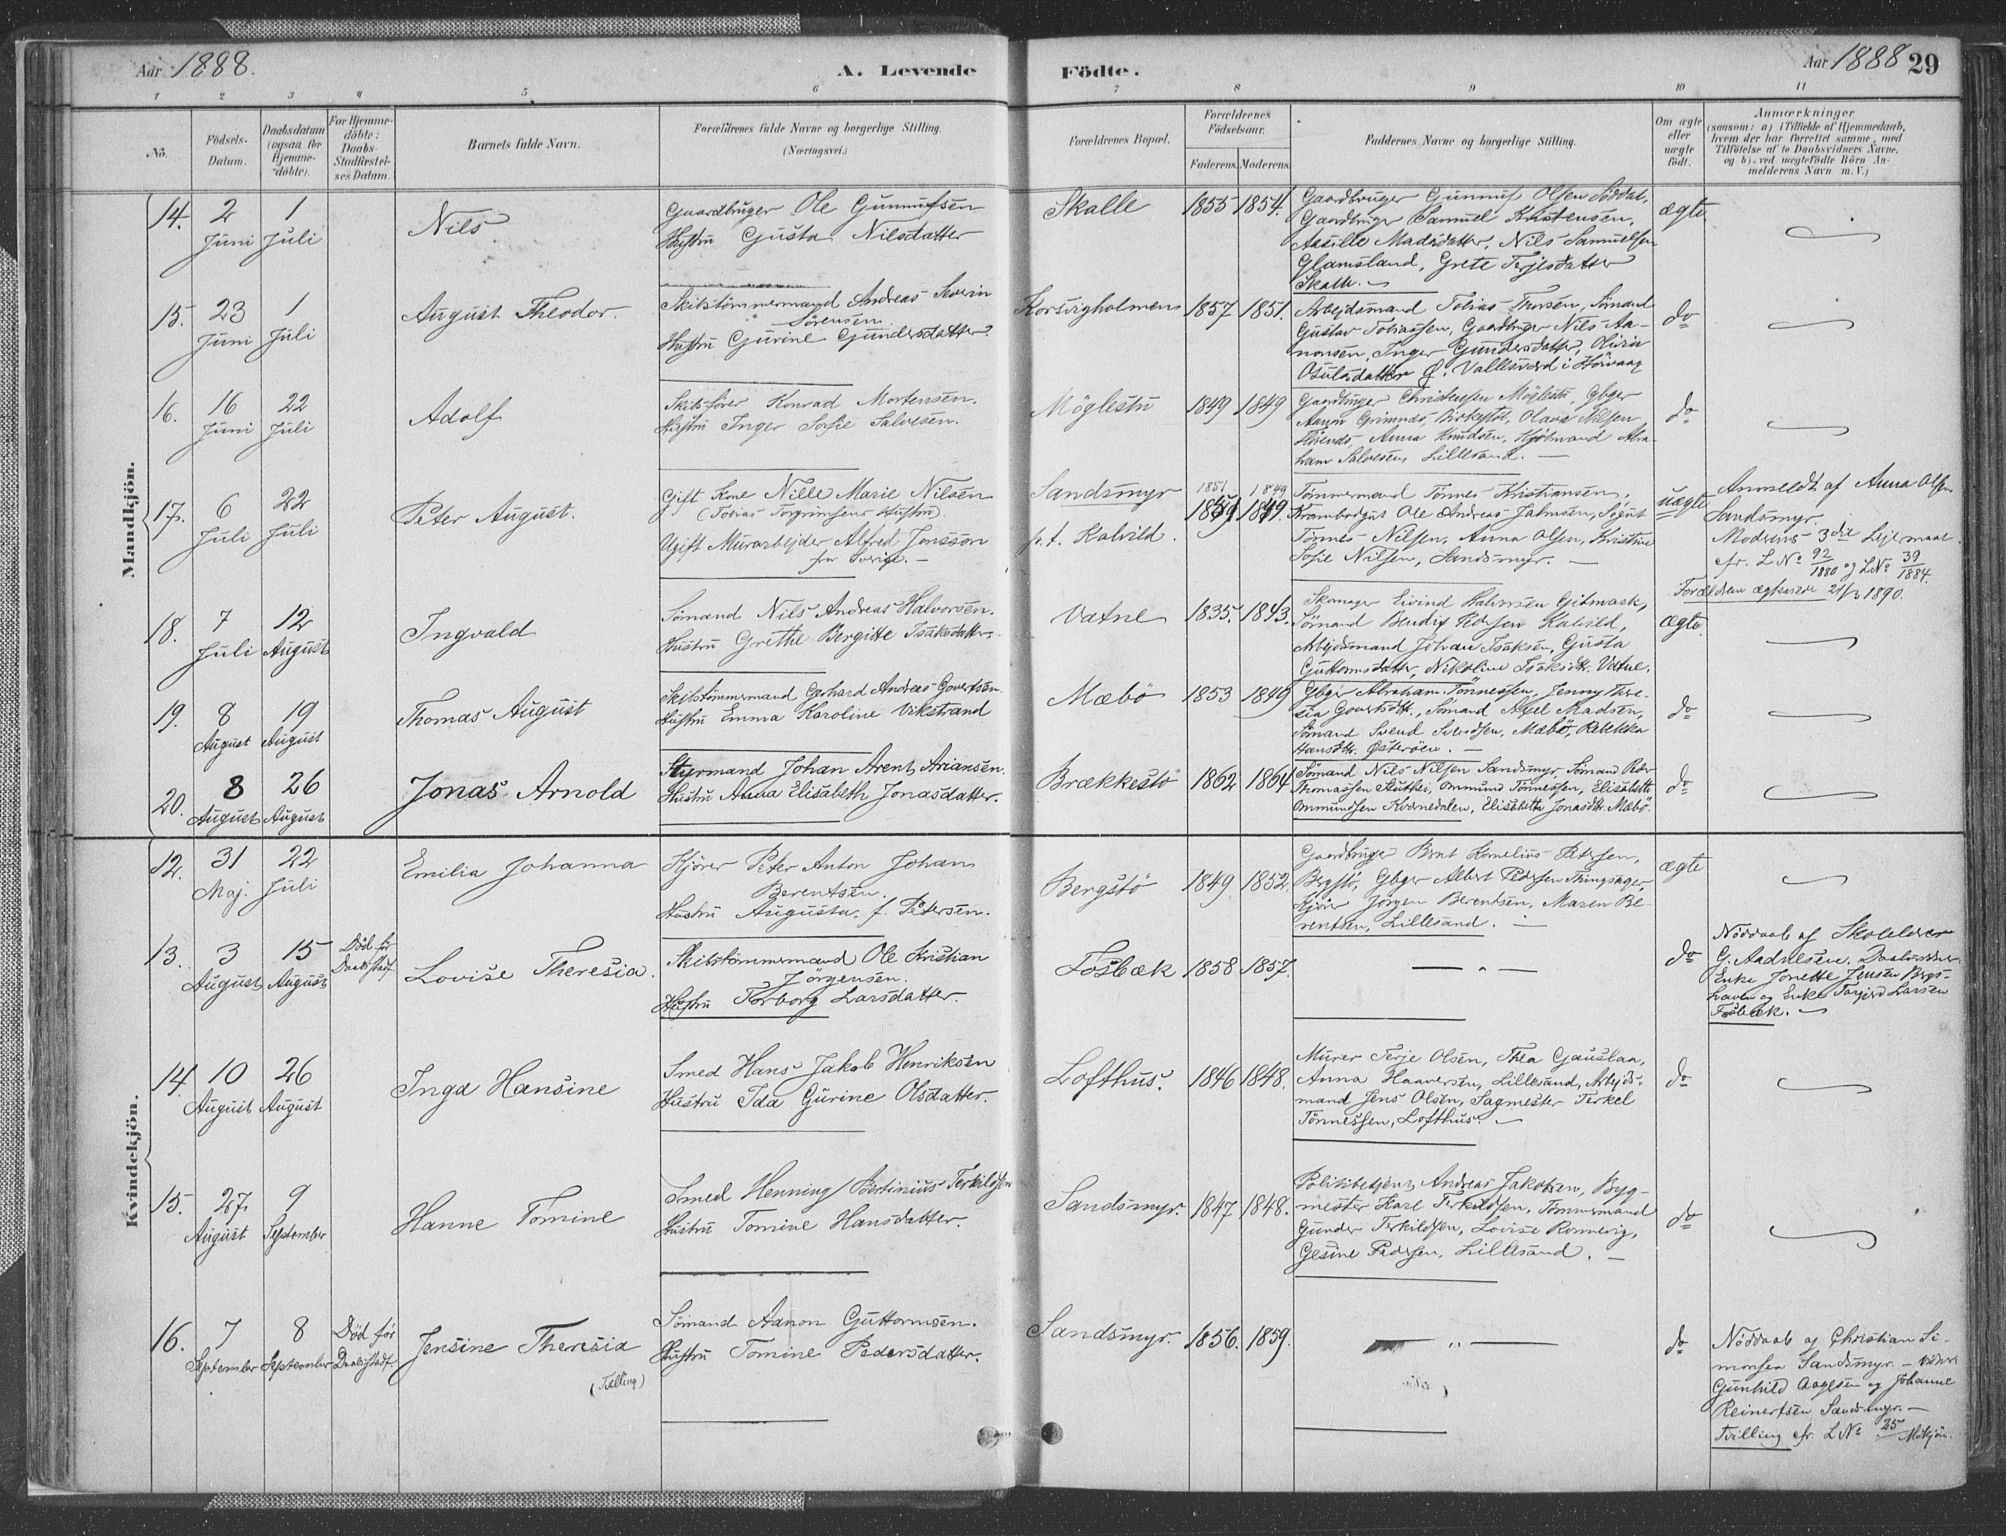 Aar 1888.
A. Levende
Födte.
Aar 1888
29
1 2 3 4 5 6 7 8 9 10 11
No.
Födsels-
Datum.
Daabsdatum
(ogsaa for
Hjemme-
döbte).
For Hjemme-
döbte:
Daabs-
Stadfæstel-
ses Datum.
Barnets fulde Navn.
Forældrenes fulde Navne og borgerlige Stilling.
(Næringsvei.)
Forældrenes Bopæl.
Forældrenes
Födselsaar.
Faderens. Moderens.
Faddernes Navne og borgerlige Stilling.
Om ægte
eller
uægte
födt.
Anmærkninger
(saasom: a) i Tilfælde af Hjemmedaab,
hvem der har forrettet samme, med
Tilföielse af to Daabsvidners Navne,
og b) ved uægtefödte Börn An-
melderens Navn m. V.)
Mandkjön.
14.
2
Juni
1
Juli
Nils
Gaardbruger Ole Gunnufsen
Hustru Gusta Nilsdatter
Skalle
1855 1854.
Gaardbruger Gunnuf Olsen
Gaardbruger Samuel Kristensen,
Madsdatter, Nils Samuelsen
Glamsland, Grete Terjesdatter
Skalle.
ægte
15.
23
Juni
1
Juli
August Theodor.
Skibstömmermand Andreas Severin
Sörensen
Hustru Gurine Gundersdatter.
Korsvigholmen
1857 1851.
Arbeidsmand Tobias Thorsen, Sömand
Gustav Tobiassen, Gaardbruger Nils Aa-
nonsen, Inger Gundersdatter,
Osulsdatter Ø. Vallesværd i Hövaag
do
16.
16
Juni
22
Juli
Adolf
Skibsförer Konrad Mortensen.
Hustru Inger Sofie Salvesen.
Möglestu
1849 1849
Gaardbruger Christensen Möglestu, Gbger
Grimnes, Olava Nilsen
Anna Knudsen, Abra-
ham Salvesen, Lillesand.
do
17.
6
Juli
22
Juli
Peter August.
Gift Kone Nille Marie Nilsen
(Tobias Torgrimsens Hustru)
Ugift Murarbeider Alfred Jonsson
fra Sverige.
Sandsmyr
p.t. Kalvild.
1851. 1849
1849.
Tömmermand Tönnes Kristiansen,
Ole Andreas Jahnsen,
Tönnes Nilsen, Anna Olsen, Kristine
Sofie Nilsen, Sandsmyr.
uægte
Anmeldt af Anna Olsen
Sandsmyr.
Modrens 3die Lejermaal
cfr. L No 92/1880 og L No 39/1884.
Forældrene 1890.
18.
7
Juli
12
August
Ingvald
Sömand Nils Andreas Halvorsen.
Hustru Grethe Bergitte Isaksdatter.
Vatne
1835. 1843.
Skomager Eivind Halvorsen Gitmark,
Sömand Bendix Kalvild,
Arbeidsmand Johan Isaksen, Gusta
Guttormsdatter, Nikoline Isaksdtr. Vatne.
ægte
19.
8
August
19
August
Thomas August
Skibstömmermand Gerhard Andreas Govertsen.
Hustru Emma Karoline Vikstrand
Mæbö
1853 1849
Gbger Abraham Tönnessen, Jenny There-
sia Govertsdtr., Sömand Axel Madsen,
Sömand Svend Svendsen, Mæbö, Rebekka
Hansdtr. Österöen.
do
20.
8
August
26
August
Jonas Arnold
Styrmand Johan Arent Ariansen.
Hustru Anna Elisabeth Jonasdatter.
Brækkestö
1862 1864
Sömand Nils Nilsen Sandsmyr, Sömand Peder
Thomassen, Ommund Tönnessen, Elisabeth
Ommundsen Kvanedalen, Elisabeth Jonasdtr. Mæbö.
do
Kvindekjön.
12.
31
Maj.
22
Juli
Emilia Johanna
Kjörer Peter Anton Johan
Berentsen.
Hustru Augusta, f. Petersen.
Bergstö
1849 1852.
Gaardbruger Bent Kornelius Petersen,
Bergstö, Gbger Albert Pedersen Tingsager,
Kjörer Jörgen Berentsen, Maren Be-
rentsen, Lillesand.
ægte
13.
3
August
15
August
Död för
Daabsstadf.
Lovise Theresia.
Skibstömmermand Ole Kristian
Jörgensen.
Hustru Torborg Larsdatter.
Fosbæk
1858 1857.
— " —
do
Nöddaab af Skolelærer
G. Aadnesen.
Enke Jonette Jensen Bergs-
haven og Enke Larsen
Fosbæk.
14.
10
August
26
August
Inga Hansine
Smed Hans Jakob Henriksen
Hustru Ida Gurine Olsdatter.
Lofthus.
1846 1848.
Murer Terje Olsen, Thea Gauslaa,
Anna Haaversen, Lillesand, Arbeids-
mand Jens Olsen, Sagmester Terkel
Tönnessen, Lofthus.
do
15.
27.
August
9
September
Hanne Tomine
Smed Henning Bertinius Terkildsen
Hustru Tomine Hansdatter.
Sandsmyr.
1847 1848.
Politibetjent Andreas Jakobsen, Byg-
mester Karl Terkildsen, Tömmermand
Gunder Terkildsen, Lovise
Gesine Pedersen, Lillesand.
do
16.
7
September
8
September
Död för
Daabsstadf.
Jensine Theresia
(Tvilling)
Sömand Aanon Guttormsen.
Hustru Tomine Pedersdatter.
Sandsmyr.
1856. 1859.
" —
do
Nöddaab af Christian Si-
monsen Sandsmyr. —
Gunhild Aagesen og Johanne
Reinertsen Sandsmyr. —
Tvilling cfr. L No 25 Mkjön.